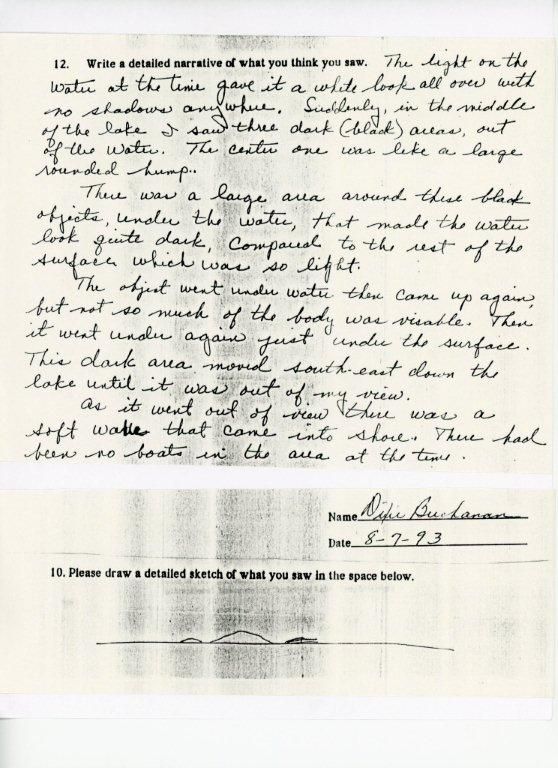 12. Write a detailed narrative of what you think you saw. The light on the
water at the time gave it a white look all over with
no shadows anywhere. Suddenly, in the middle
of the lake I saw three dark (black) areas, out
of the water. The center one was like a large
rounded hump..
There was a large area around these black
objects, under the water, that made the water
look quite dark, compared to the rest of the
surface which was so light.
The object went under water then came up again,
but not so much of the body was visable. Then
it went under again just under the surface.
This dark area moved south-east down the
lake until it was out of my view.
As it went out of view there was a
soft wake that came into shore. There had
been no boats in the area at the time.
Name Buchanan
Date 8-7-93
10. Please draw a detailed sketch of what you saw in the space below.